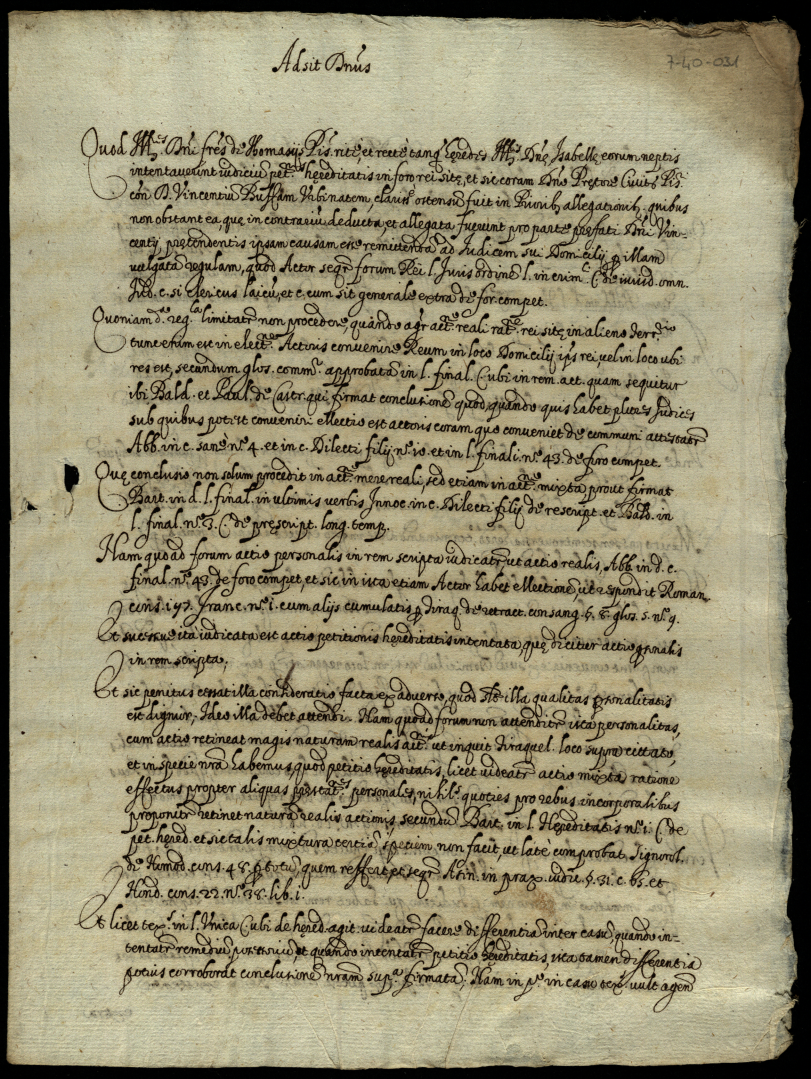 Adsit Dnus
7-40-031
Quod Ill. Dni frēs de Thomasijs Pis. rite, et recte tanq̃ heredes Ill. Dnę Isabellę eorum neptis
intentaverint iudiciū pet.nis hereditatis in foro rei sitę, et sic coram Dno Pretore Civit. Pis.
cōn D. Vincentiū Bussam Urbinatem, clarisē ostensum fuit in Priorib. allegationib. quibus
non obstant ea, quę in contrariū deducta, et allegata fuerunt pro parte prefati Dni Vin-
centij, prętendentis ipsam causam esse remittendā ad Iudicem sui Domicilij ꝑ illam
vulgatā regulam, quod Actor seqr̃ forum Rei l. Juris ordinē l. in crim. C. de iurisd. omn.
Jud. c. si clericus laicū, et c. cum sit generale extra de for. compet.
Quoniam d.a reg.la limitatr̃ non procedere, quando agr̃ act.e reali rat.e rei sitę in alieno Terr.rio
tunc etiam est in elect.e Actoris convenire Reum in loco Domicilij ipīs rei, vel in loco ubi
res est, secundum glos. comm.r approbatā in l. final. C. ubi in rem. act. quam sequitur
ibi Bald. et Paul. de Castr. qui firmat conclusionē quod, quando quis habet plures Judices
sub quibus potest conveniri ellectio est actoris coram quo conveniet de communi attestatr̃
Abb. in c. sanè nº. 4. et in c. Dilecti filij nº. 10. et in l. finali. nº. 43. de foro compet.
Quę conclusio non solum procedit in act.e mere reali, sed etiam in act.e mixta prout firmat
Bart. in d. l. final. in ultimis verbis Innoc. in c. Dilecti filij de rescript. et Bald. in
l. final. nº. 3. C. de pręscript. long. temp.
Nam quoad forum actio personalis in rem scripta iudicatr̃ ut actio realis, Abb. in d. c.
final. nº. 43. de foro compet, et sic in ista etiam Actor habet ellectionē, ut respondit Roman.
cons. 197. Franc. nº. 1. cum alijs cumulatis ꝑ Tiraq. de retract. consang. §. 8. glos. 5. nº. 9.
Et ita iudicata est actio petitionis hereditatis intentata, quę dicitur actio ꝑsonalis
in rem scripta;
Et sic penitus cessat illa consideratio facta ex adverso, quod illa qualitas ꝑsonalitatis
est dignior, Ideo illa debet attendi. Nam quoad forum non attenditr̃ ista personalitas,
cum actio retineat magis naturam realis act. ut inquit Tiraquel. loco supra cittato,
et in specie nrā habemus, quod petitio hereditatis, licet videatr̃ actio mixta ratione
effectus propter aliquas pręstat. personales, nihil. quoties pro rebus incorporalibus
proponitr̃ retinet naturā realis actionis, secundū Bart. in l. Hereditatis nº. 1. C. de
pet. hered. et sic talis mixtura tertiā speciem non facit, ut latè comprobat Signorol.
de Homod. cons. 48. ꝑ totū, quem reffert, et seqr̃ Asin. in prax. iudic. §. 31. c. 65. et
Hond. cons. 22. nº. 38. lib. 1.
Et licet tex. in l. Unica C. ubi de hered. agit. videatr̃ facere differentiā inter casū, quando in-
tentatr̃ remediū possessoriū, et quando intentatr̃ petitio hereditatis, ista tamen differentia
potius corroborat conclusionē nrām sup.a firmatā; Nam in pº. in casu tex. vult agen